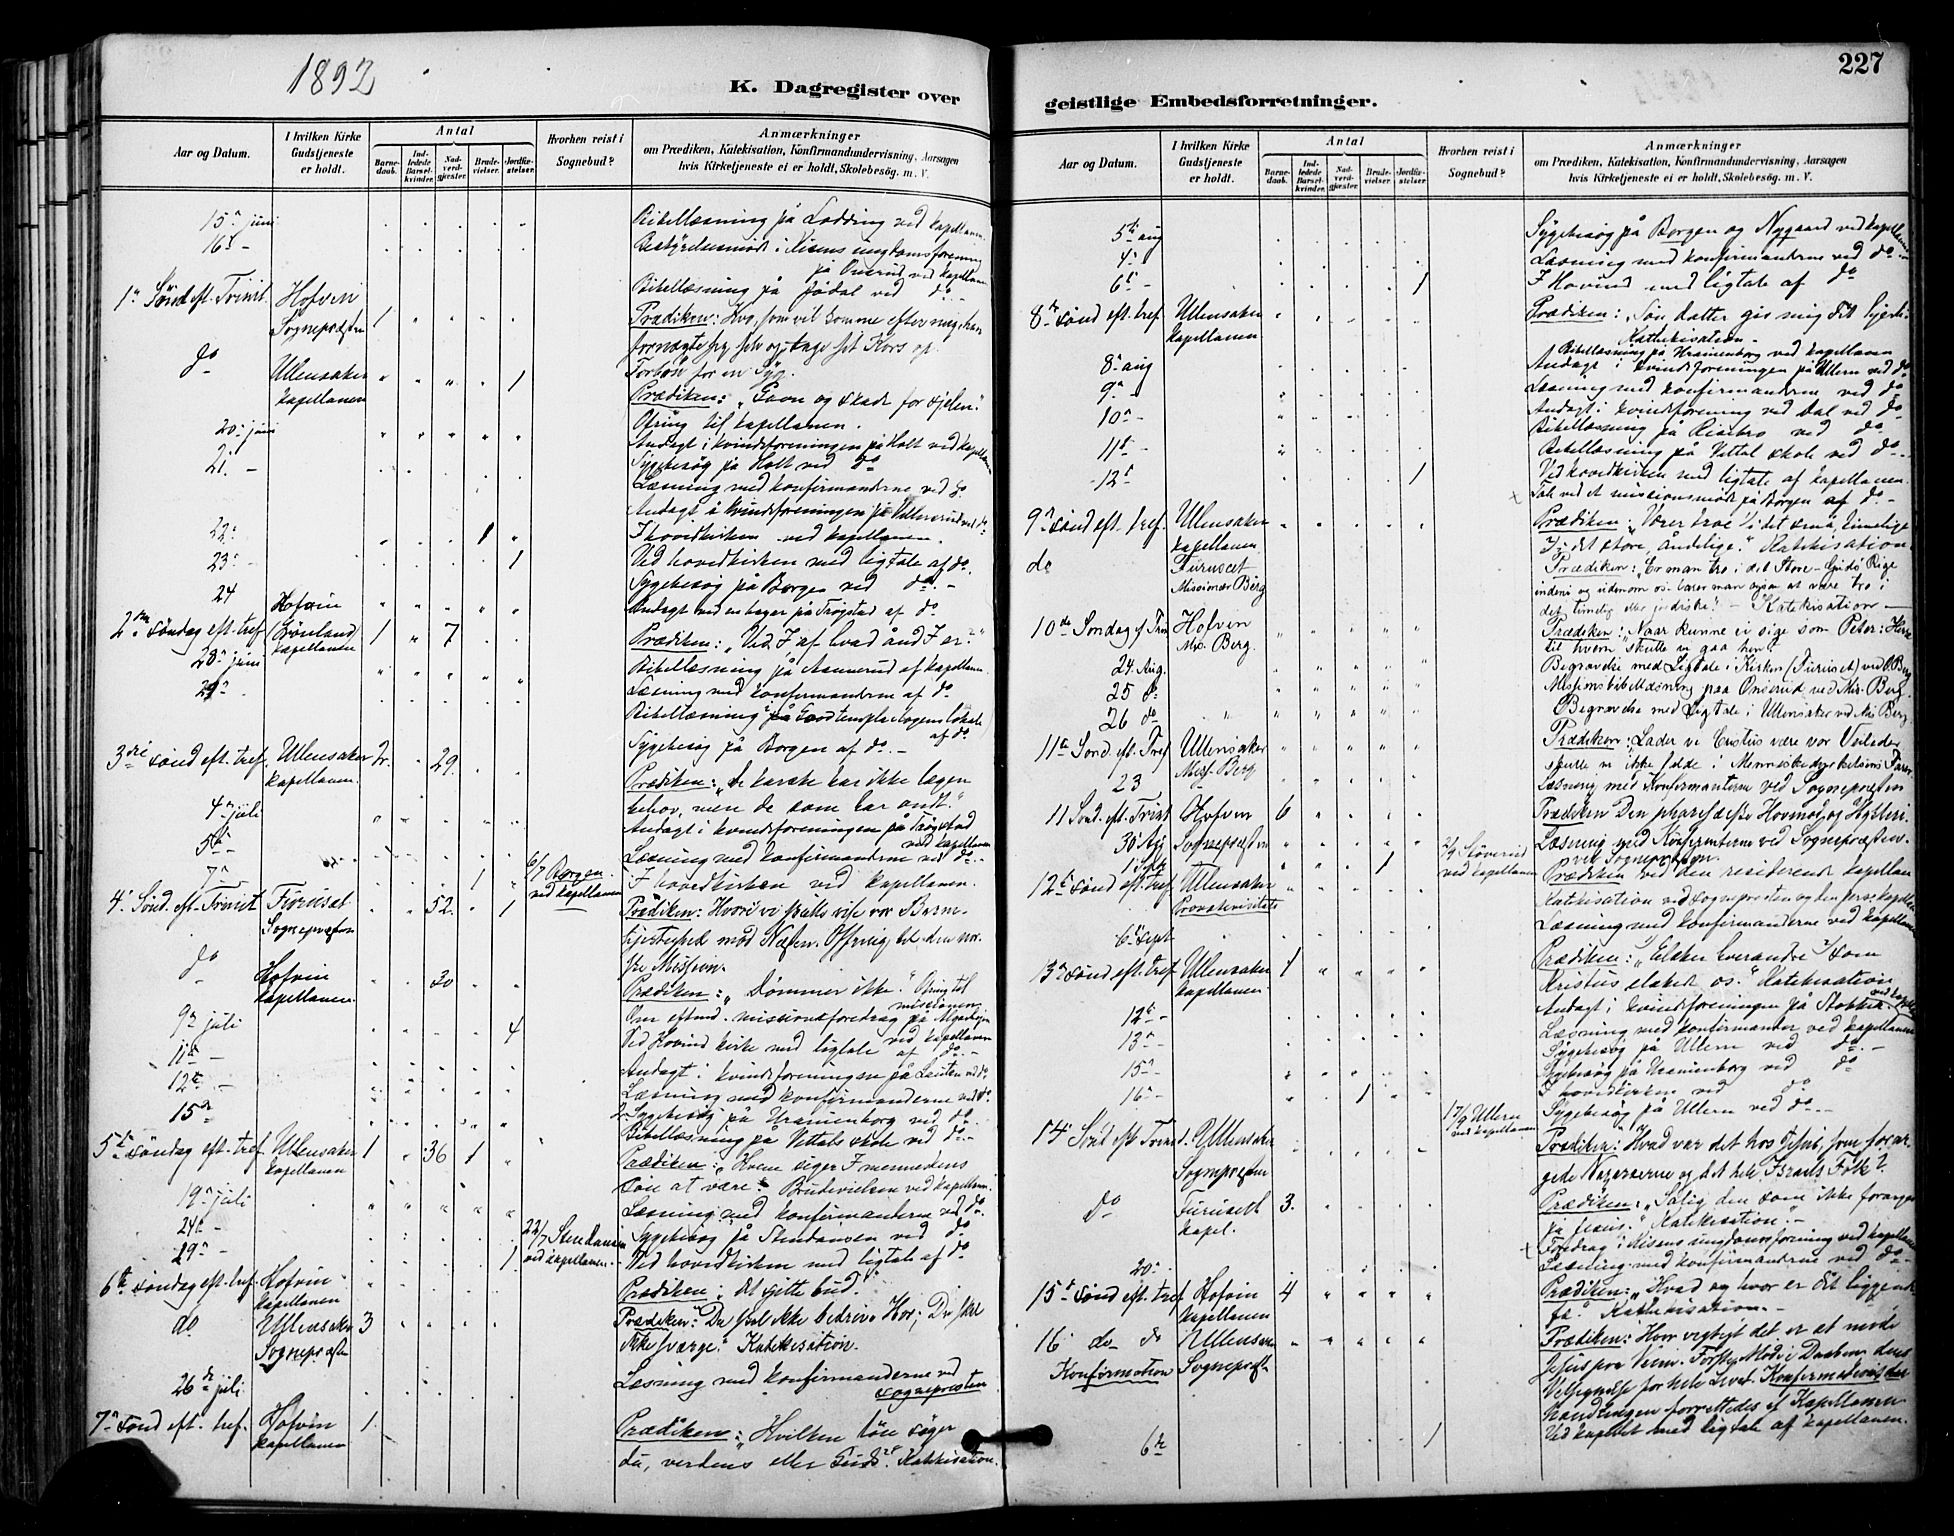 1892
K. Dagregister over
Aar og Datum.
I hvilken Kirke Gudstjeneste er holdt.
Antal
Barnedaab.
Indledede Barselkvinder.
Nadverdgjester.
Brudevielser.
Jordfæstelser.
Hvorhen reist i Sognebud?
Anmærkninger
om Prædiken, Katekisation, Konfirmandundervisning, Aarsagen
hvis Kirketjeneste ei er holdt, Skolebesøg. m. V.
15de juni Bibellæsning på Lodding ved kapellanen.
16de - Bestyrelsesmøde i Risens ungdomsforening
på Onsrud ved kapellanen
Bibellæsning på Jødal ved do -
1ste Sönd eft. Trinit. Hofvin Sognepræsten 1 Prædiken: Hvo, som vil komme efter mig, han
fornægte sig selv og tage sit Kors op.
Forbøn for en Syg.
do Ullensaker kapellanen 1 Prædiken: "Gavn og skade for sjelen".
Ofring til kapellanen.
20de juni Andagt i kvindeforeningen på Holt ved kapellanen
21de - Sygebesøg på Holt ved do
Læsning med konfirmanderne ved do.
Andagt i kvindeforeningen på ved do
22de 1 I hovedkirken ved kapellanen.
23de - 1 Ved hovedkirken med ligtale af do.
24 Sygebesøg på Borgen ved do. -
Andagt ved en bager på Trøgstad af do
2den Söndag eft. tref. Hofvin (Grønlund) kapellanen 1 7 Prædiken: "Ved I af hvad ånd I er?"
28de juni Bibellæsning på Aannerud af kapellanen
29de Læsning med konfirmanderne af do
Bibellæsning på Goodtemplarlogens lokale
af do
Sygebesøg på Borgen af do. -
3die Sönd eft. tref. Ullensaker kapellanen. 2. 29. Prædiken: "De karske har ikke lægen
behov, men de som har ondt."
4de juli Andagt i kvindeforeningen på Trøgstad
ved kapellanen
5te Læsning med konfirmanderne ved do. -
7de - 1 6/7 Borgen ved kapellanen I hovedkirken ved kapellanen.
4. Sönd. eft. Trinit. Furuset Sognepræsten 52. 1 Prædiken: Hvori vi skulle vise vor Barm-
hjertighed mod Næsten. Offring til den nor-
ske Mission.
do Hofvin kapellanen. 30 Prædiken: "Dømmer ikke." Ofring til
missionen
9de juli 4 Om eftmd. missionsforedrag på
ved kapellanen
Ved Hovind kirke med ligtale af do. -
11te - Andagt i kvindeforeningen på Lauten ved do
12te - Læsning med konfirmanderne ved do.
15de 2 Sygebesøg på Uranienborg ved do.
Bibellæsning på Vittals skole ved do. -
5te Söndag eft. tref. Ullensaker kapellanen 1 36 1 Prædiken: "Hvem siger I menneskens
søn at være?" Brudevielsen ved kapellanen.
19de juli Læsning med konfirmanderne ved do.
24de - 22/7 Stendansen ved kapellanen. Sygebesøg på Stendansen ved do
29de - 1 Ved hovedkirken med ligtale af do
6te Söndag eft. tref. Hofvin kapellanen Prædiken: "det sjette bud".
do Ullensaker Sognepræsten 3 Prædiken: "Du skal ikke bedrive Hor; Du skal
ikke sværge." Katekisation.
26de juli Læsning med konfirmanderne ved
sognepresten
7de Sönd eft. tref. Hofvin kapellanen 1. Prædiken: "Hvilken løn søger
du, verdens eller Guds?" Katekisation.
227
geistlige Embedsforretninger.
Aar og Datum.
I hvilken Kirke Gudstjeneste er holdt.
Antal
Barnedaab.
Indledede Barselkvinder.
Nadverdgjester.
Brudevielser.
Jordfæstelser.
Hvorhen reist i Sognebud?
Anmærkninger
om Prædiken, Katekisation, Konfirmandundervisning, Aarsagen
hvis Kirketjeneste ei er holdt, Skolebesøg. m. V.
5te aug Sygebesøg på Borgen og Nygaard ved kapellanen
4de Læsning med konfirmanderne ved do. -
6te - 1 I Hovind med ligtale af do
8de Sönd eft. tref. Ullensaker kapellanen Prædiken: "Søn datter giv mig dit hjerte"
Katekisation. -
Bibellæsning på Uranienborg ved kapellanen
8de aug Andagt i kvindeforeningen på Ullern ved do
9de - Læsning med konfirmanderne ved do
Andagt i kvindeforening ved Dal ved do
10de - Bibellæsning på Risebro ved do
11te - Bibellæsning på Vittal skole ved do. -
12te 1 Ved hovedkirken med ligtale af kapellanen.
+ Tale ved et missionsmøde på Borgen af do -
9de Sönd eft. tref. Ullensaker kapellanen Prædiken: "Værer troe 1/ i det små, timelige
2/ i det store, åndelige." Katekisation.
do Furuset Missionær Berg Prædiken: "Er man tro i det Store - Guds Rige
indeni og udenom os - lærer man også at være tro i
det timelige eller jordiske! - Katekisation -
10de Söndag ef Trin Hofven Mis. Berg. Prædiken: "Naar kunne vi sige som Peter: Herre
til hvem skulle vi gaa hen?"
24. Aug. Begravelse med Ligtale i Kirken (Furuset) ved O. Berg
25 do Missionsbibellæsning paa Onserud ved Mis. Berg.
26 do Begravelse med Ligtale i Ullensaker ved Mis Berg
11te Sönd eft. Tref Ullensaker Miss. Berg Prædiken: "Lader vi Cristus være vor Veileder,
skulle vi ikke falde i Menneskedyrkelsens Farer
23 Læsning med Konfirmanterne ved Sognepræsten
11 Sönd. eft. Trinit Hofven Sognepræsten 6 Prædiken Den pharisæiske Hovmod og Hykleri.
30 Aug Læsning med Konfirmanterne ved Sognepræsten.
1 Sept 1 2/9 Støverud ved kapellanen ved Sognepræsten.
12te Sönd eft. tref. Ullensaker Provstevisitats Prædiken ved den residerende kapellan
Katekisation ved sognepresten og den pers. kapellan
6te Sept. Læsning med konfirmanderne ved kapellanen
13de Sönd eft. tref. Ullensaker kapellanen. 1 Prædiken: "Elsker hverandre som
Kristus elsket os." Katekisation
12te - Andagt i kvindeforeningen på Stokke ved kapell.
13de - Læsning med konfirmander ved kapellanen
Sygebesøg på Ullern ved do. -
15de - Sygebesøg på Uranienborg ved do
16de - 1 I hovedkirken ved do
17/9 Ullern ved kapellanen Sygebesøg på Ullern ved do. -
14de Sönd eft Trinit. Ullensaker Sognepræsten Prædiken: Hvad var det hos Jesus, som forar-
gede Nazaræerne og det hele Israels Folk?
do Furusett kapel. 3. Prædiken: "Salig den som ikke forarges
på Jesus." Katekisation. -
+ Foredrag i Risens ungdomsforening ved kapellanen
20de Læsning med konfirmanderne ved do. -
15de Sönd eft. tref. Hofvin kapellanen 4 Prædiken: "Hvad og hvor er det liggende
få". Katekisation. -
16de do do Ullensaker Sognepræst. Prædiken: Hvor vigtigt det er at møde
Konfirmation Jesus paa Veien. Første Møde i Daaben dens
Velsignelse for hele Livet. Konfirmations
handlingen forrettedes af Kapellanen
6te 1 Ved kapellet med ligtale af kapellanen.